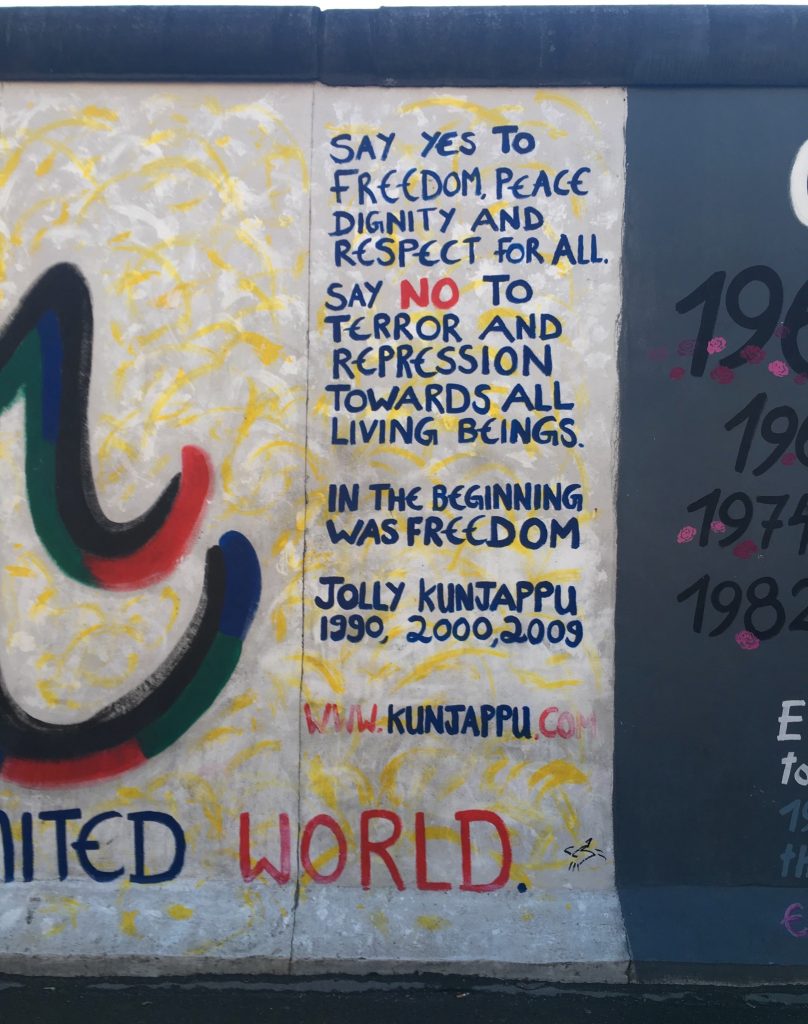 SAY YES TO
FREEDOM, PEACE
DIGNITY AND
RESPECT FOR ALL.
SAY NO TO
TERROR AND
REPRESSION
TOWARDS ALL
LIVING BEINGS.
IN THE BEGINNING
WAS FREEDOM
JOLLY KUNJAPPU
1990, 2000, 2009
WWW.KUNJAPPU.COM
NITED WORLD.
196
196
1974
1982
E
to
th
€